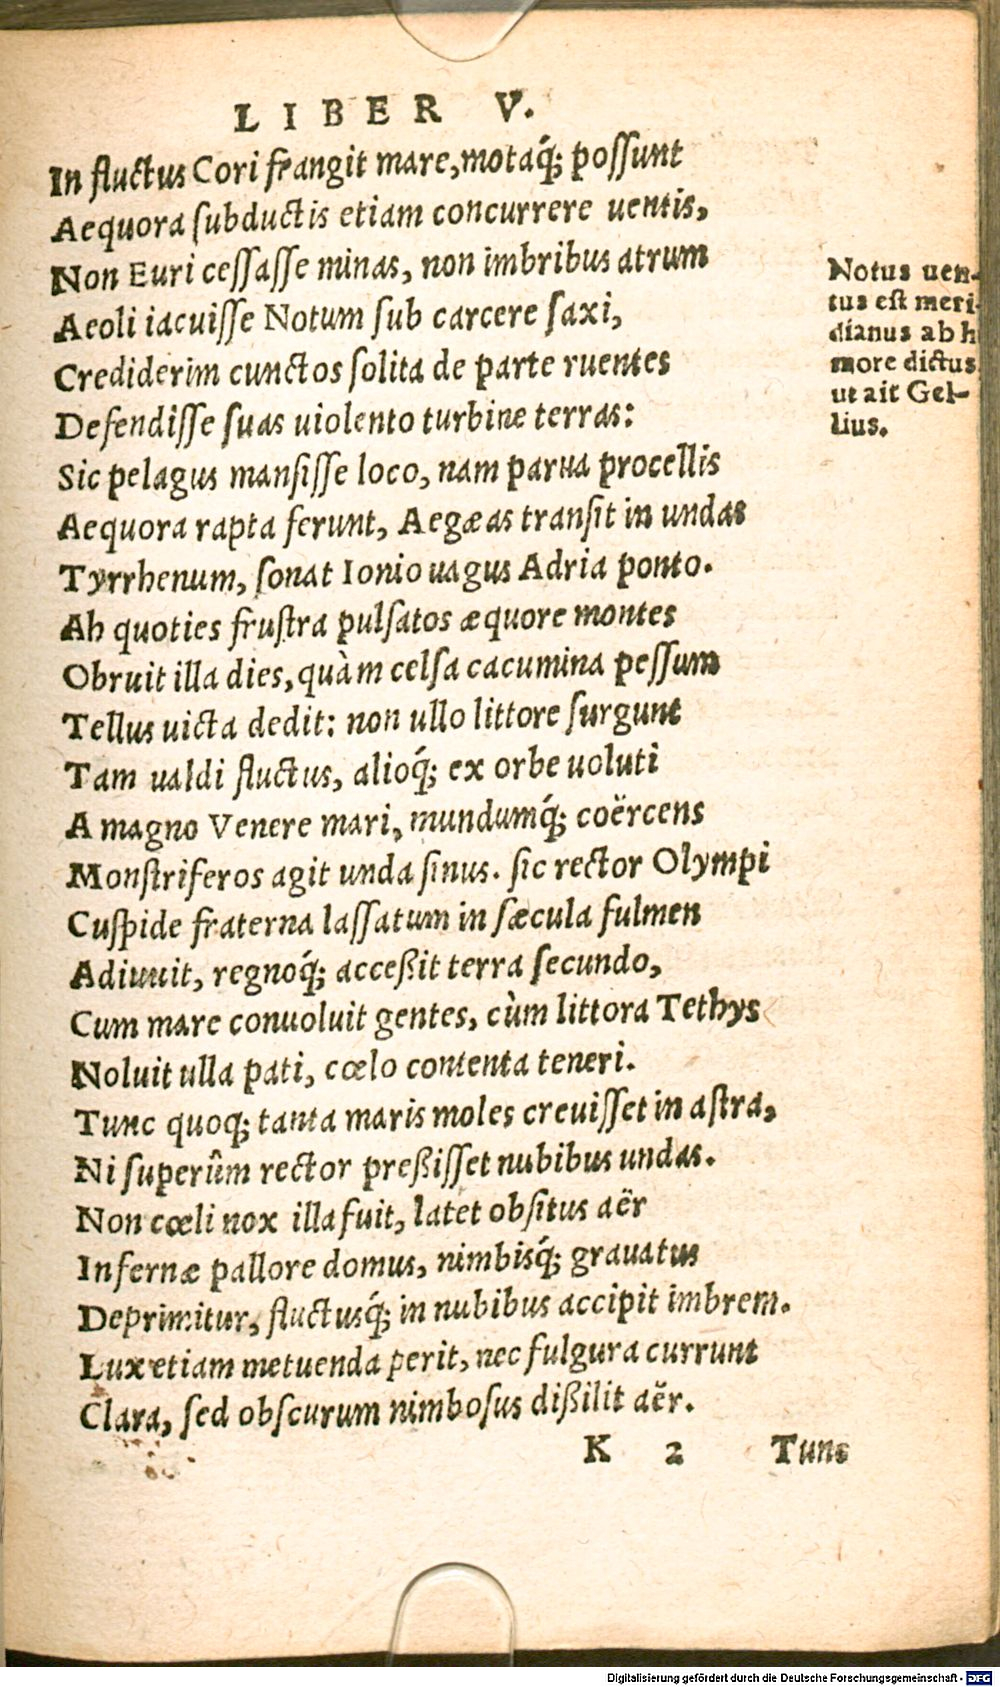 LIBER V.
In fluctus Cori frangit mare, motaq́; possunt
Aequora subductis etiam concurrere uentis,
Non Euri cessasse minas, non imbribus atrum
Aeoli iacuisse Notum sub carcere saxi,
Crediderim cunctos solita de parte ruentes
Defendisse suas uiolento turbine terras:
Sic pelagus mansisse loco, nam parua procellis
Aequora rapta ferunt, Aegæas transit in undas
Tyrrhenum, sonat Ionio uagus Adria ponto.
Ah quoties frustra pulsatos æquore montes
Obruit illa dies, quàm celsa cacumina pessum
Tellus uicta dedit: non ullo littore surgunt
Tam ualdi fluctus, alioq́; ex orbe uoluti
A magno Venere mari, mundumq́; coërcens
Monstriferos agit unda sinus. sic rector Olympi
Cuspide fraterna lassatum in sæcula fulmen
Adiuuit, regnoq́; acceßit terra secundo,
Cum mare conuoluit gentes, cùm littora Tethys
Noluit ulla pati, cœlo contenta teneri.
Tunc quoq; tanta maris moles creuisset in astra,
Ni superûm rector preßisset nubibus undas.
Non cœli nox illa fuit, latet obsitus aër
Infernæ pallore domus, nimbisq́; grauatus
Deprimitur, fluctusq́; in nubibus accipit imbrem.
Lux etiam metuenda perit, nec fulgura currunt
Clara, sed obscurum nimbosus dißilit aër.
K 2 Tunc
Notus uen-
tus est meri-
dianus ab h
more dictus
ut ait Gel-
lius.
Digitalisierung gefördert durch die Deutsche Forschungsgemeinschaft - DFG